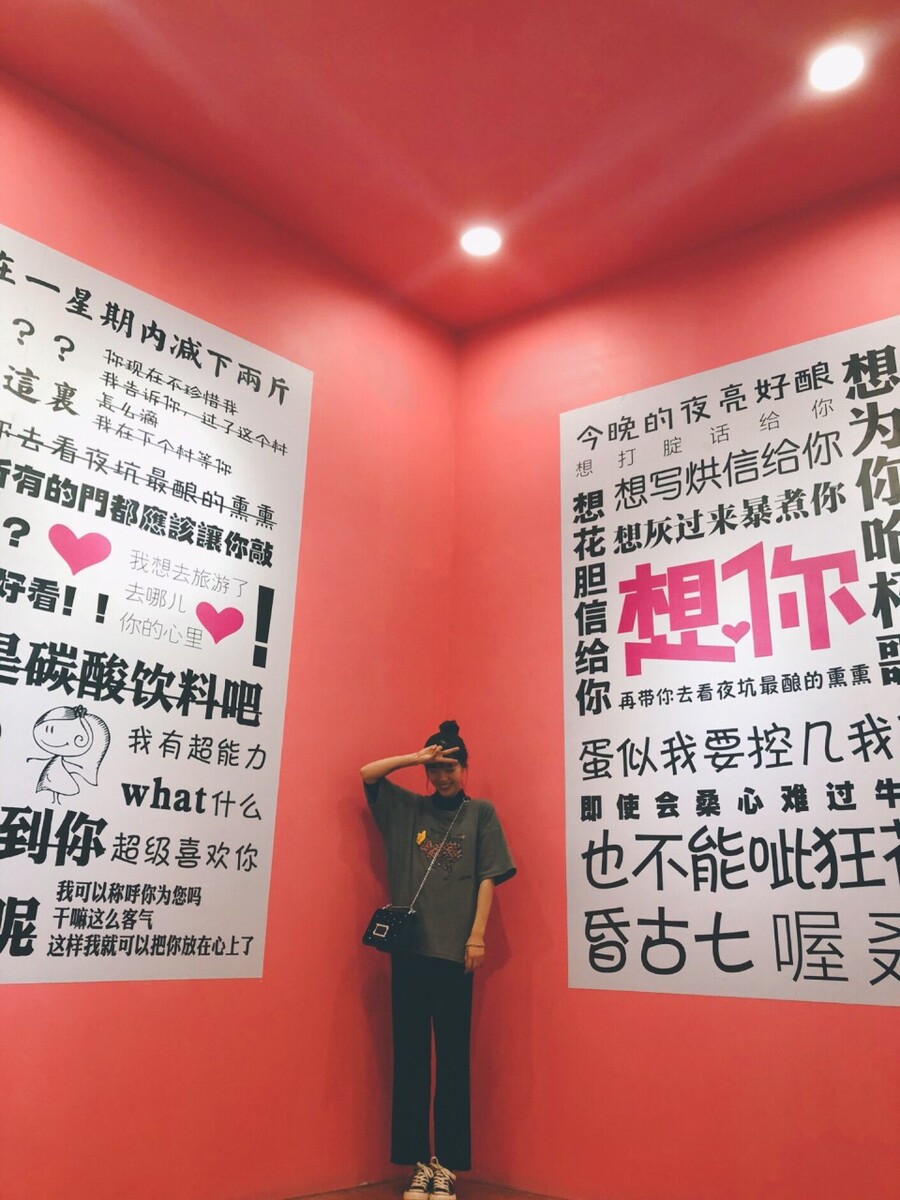 在一星期内减下兩斤
？？
這裏
你现在不珍惜我
我告诉你，过了这个村
怎么滴
我在下个村等你
你去看夜坑最酿的熏熏
所有的門都應該讓你敲
？
我想去旅游了
去哪儿
你的心里
好看！！
！
是碳酸饮料吧
我有超能力
what什么
到你
超级喜欢你
呢
我可以称呼你为您吗
干嘛这么客气
这样我就可以把你放在心上了
今晚的夜亮好酿
想打腚话给你
想写烘信给你
想灰过来暴煮你
想花胆信给你
想你
想为你哈
再带你去看夜坑最酿的熏熏
蛋似我要控几我
即使会桑心难过牛
也不能呲狂
昏古七喔